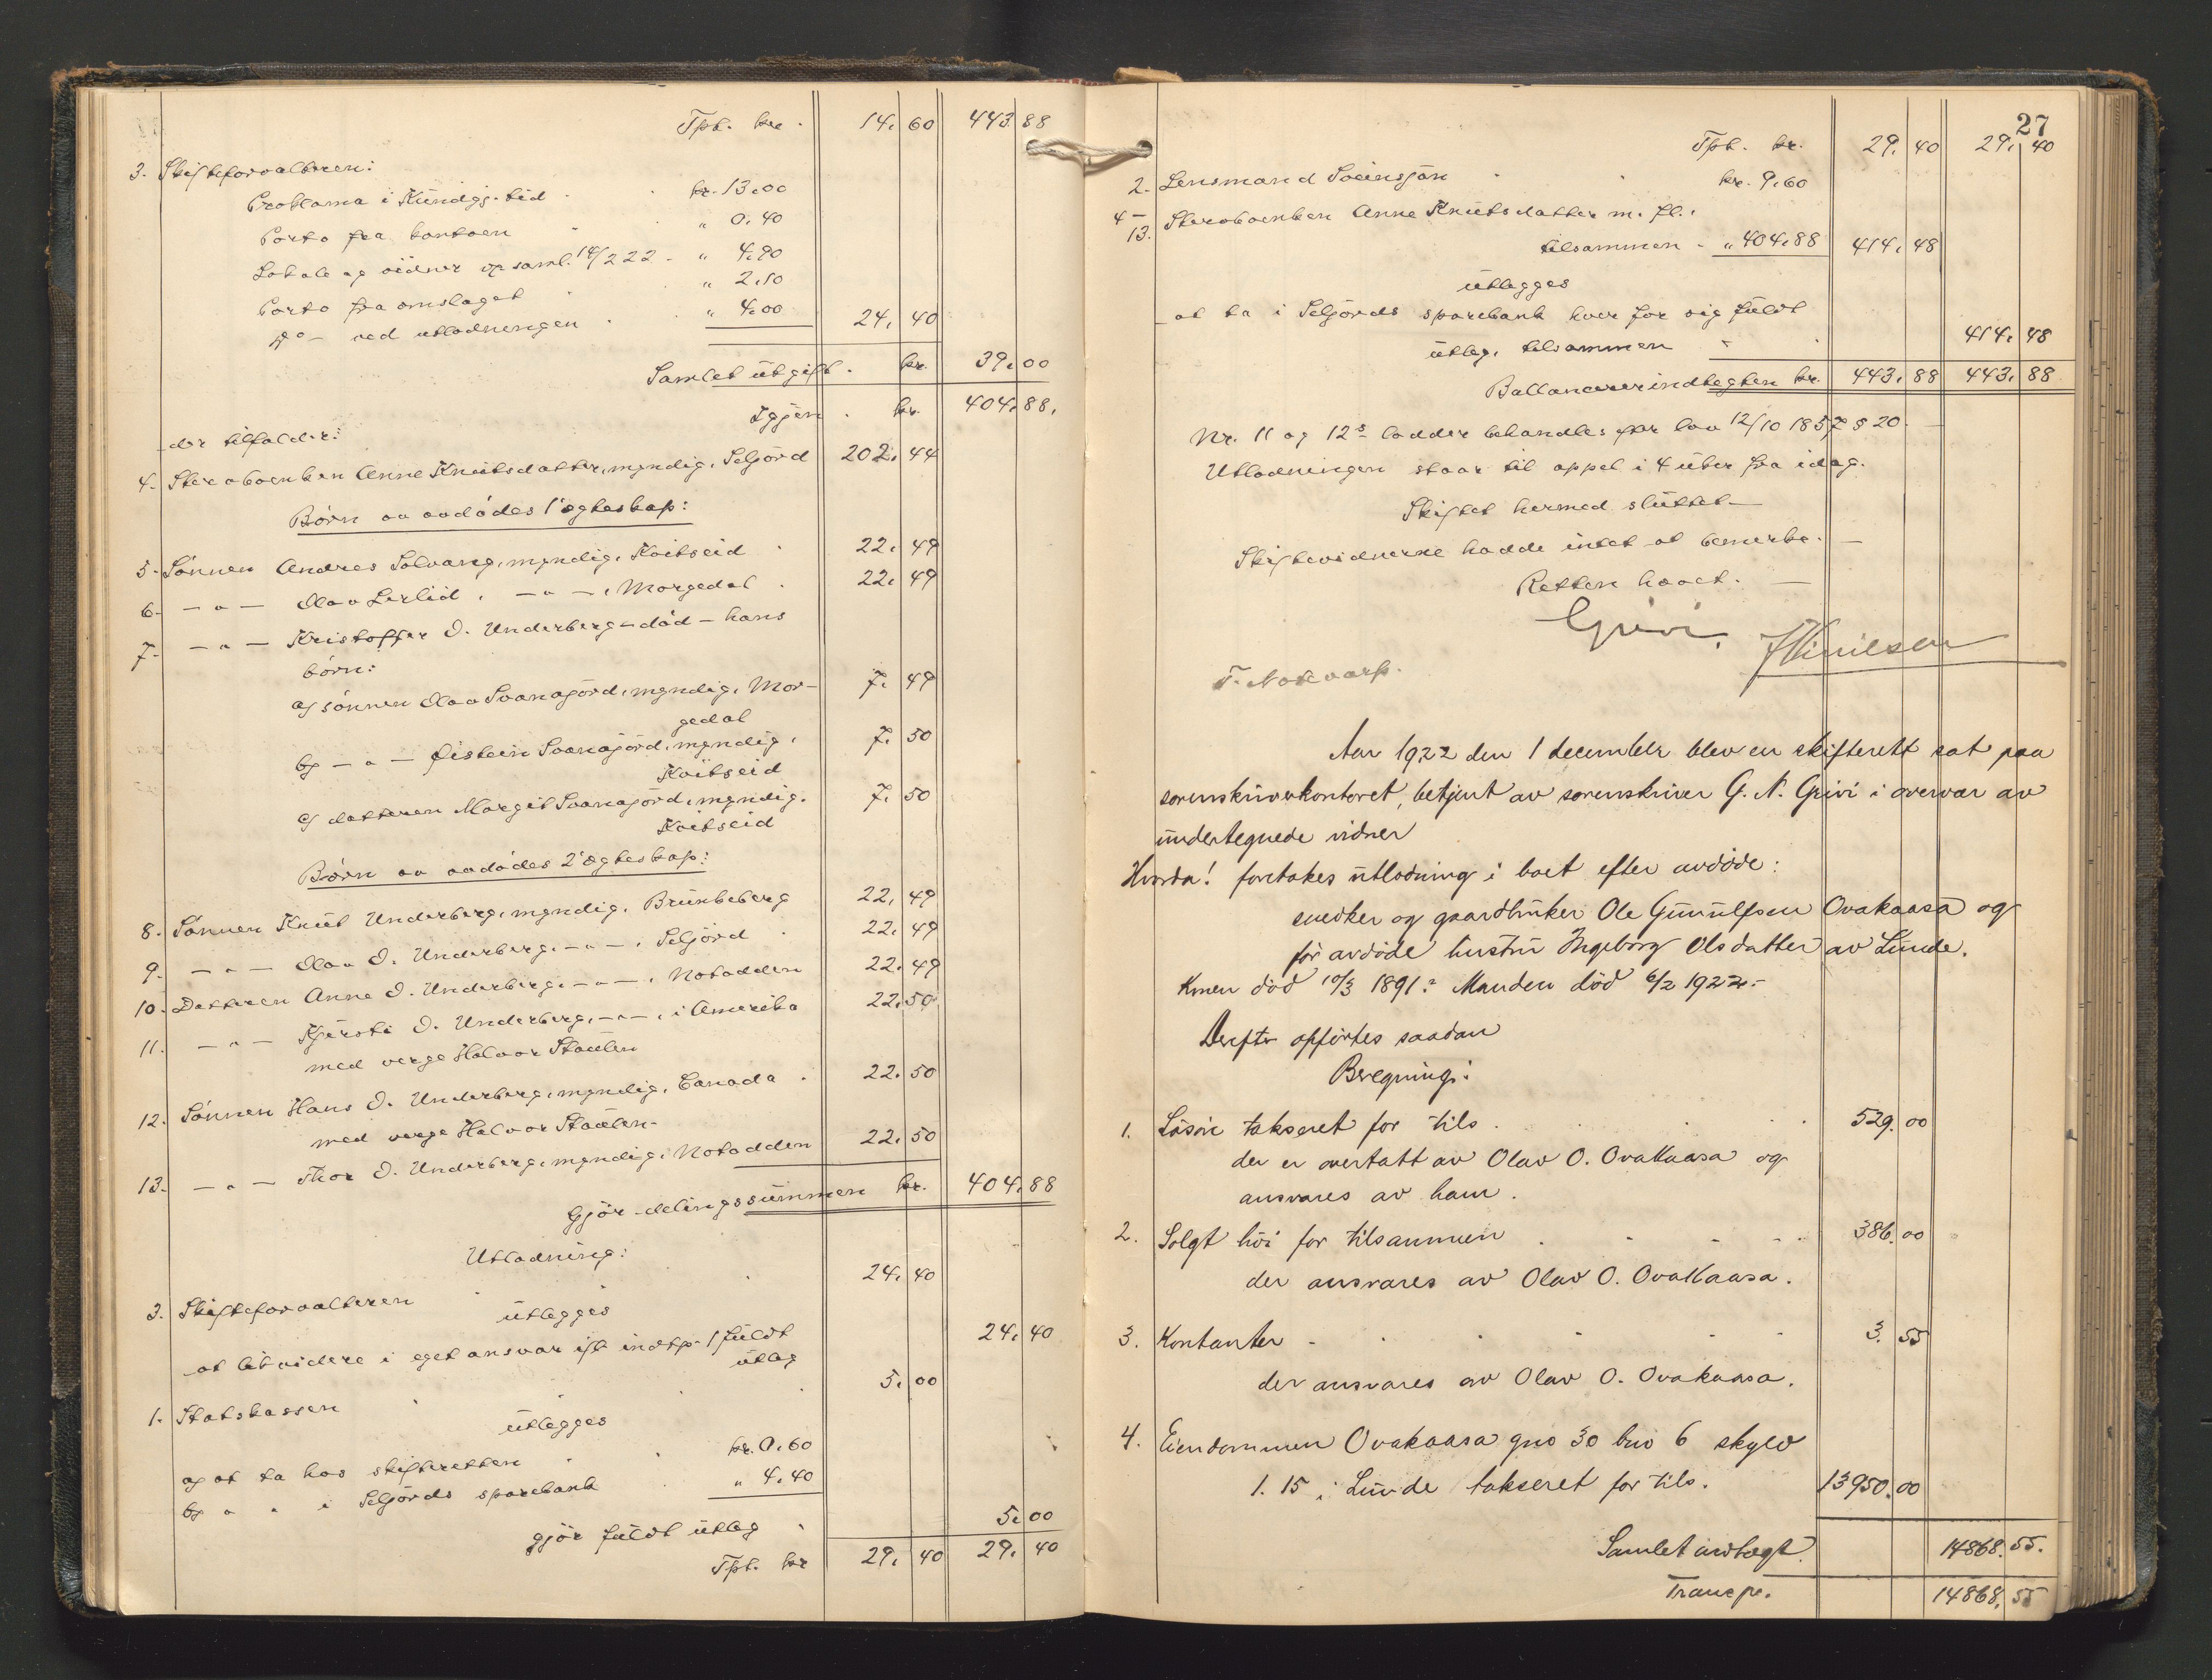 Tpt. kr. 14. 60 443 88
3. Skifteforvalteren:
Proklama i Kundgj. tid kr. 13.00
Porto fra kontoen " 0.40
Lokale og vidner op saml. 14/2 22 - " 4.90
Porto fra omslaget " 2.10
do - ved utlodningen " 4.00 24. 40
Samlet utgift. kr. 39.00
Igjen kr. 404.88.
der tilfalder:
4. Stervboenken Anne Knutsdatter, myndig, Seljord 202. 44
Børn av avdødes 1' egteskap:
5. Sønnen Andres Solvang, myndig, Kvitseid 22. 49
6. - " - Olav Lerlid, - " -, Morgedal 22. 49
7. - " - Kristoffer O. Underberg - død - hans
børn:
a) sønnen Olav Svanajord, myndig, Mor- 7. 49
gedal
b) - " - Øistein Svanajord, myndig, 7. 50
Kvitseid
c) datteren Margit Svanajord, myndig. 7. 50
Kvitseid
Børn av avdødes 2' egteskap:
8. Sønnen Knut Underberg, myndig, Brunkeberg 22. 49
9. - " - Olav O. Underberg, - " -, Seljord 22. 49
10. Datteren Anne O. Underberg, - " -, Notodden 22. 49
11. - " - Kjersti O. Underberg, - " -, i Amerika 22. 50
med verge Halvor Staulen
12. Sønnen Hans O. Underberg, myndig, Canada 22. 50
med verge Halvor Staulen -
13. - " - Thor O. Underberg, myndig, Notodden 22. 50
Gjør delingssummen kr. 404. 88
Utlodning:
3. Skifteforvalteren 24. 40
utlegges
at likvidere i eget ansvar ifl. indtp. 1 fuldt 24. 40
utlæg
1. Statskassen 5. 00
utlegges
a) at ta hos skifteretten kr. 0.60
b) " " i Seljords sparebank " 4.40
gjør fuldt utlæg 5.00
Tpt. kr 29. 40 29. 40
27
Tpt. kr. 29. 40 29. 40
2. Lensmand Sveinsjån kr. 9.60
4 -
13. Stervboenken Anne Knutsdatter m. fl.
tilsammen - " 404.88 414. 48
utlegges
at ta i Seljords sparebank hver for sig fuldt
utlæg, tilsammen 414. 48
Ballancerer indtegten kr. 443. 88 443. 88
Nr. 11 og 12s lodder behandles efter lov 12/10 1857 § 20.
Utlodningen staar til appel i 4 uker fra idag.
Skiftet hermed sluttet -
Skiftevidnerne hadde intet at bemerke. -
Retten hævet. -
Grivi.
T. Notevarp.
Aar 1922 den 1 december blev en skifterett sat paa
sorenskriverkontoret, betjent av sorenskriver G. N. Grivi i overvær av
undertegnede vidner
Hvorda! foretakes utlodning i boet efter avdøde:
snedker og gaardbruker Ole Gunulfsen Ovakaasa og
før avdøde hustru Ingeborg Olsdatter av Lunde.
Konen død 10/3 1891. Manden død 6/2 1922. -
Derefter opførtes saadan
Beregning:
1. Løsøre takseret for tils. 529. 00
der er overtatt av Olav O. Ovakaasa og
ansvares av ham.
2. Solgt høi for tilsammen 386. 00
der ansvares av Olav O. Ovakaasa.
3. Kontanter 3. 55
der ansvares av Olav O. Ovakaasa.
4. Eiendommen Ovakaasa gno 30 bno 6 skyld
1. 15 i Lunde takseret for tils. 13950. 00
Samlet indtægt. 14868. 55.
Transp. 14868. 55